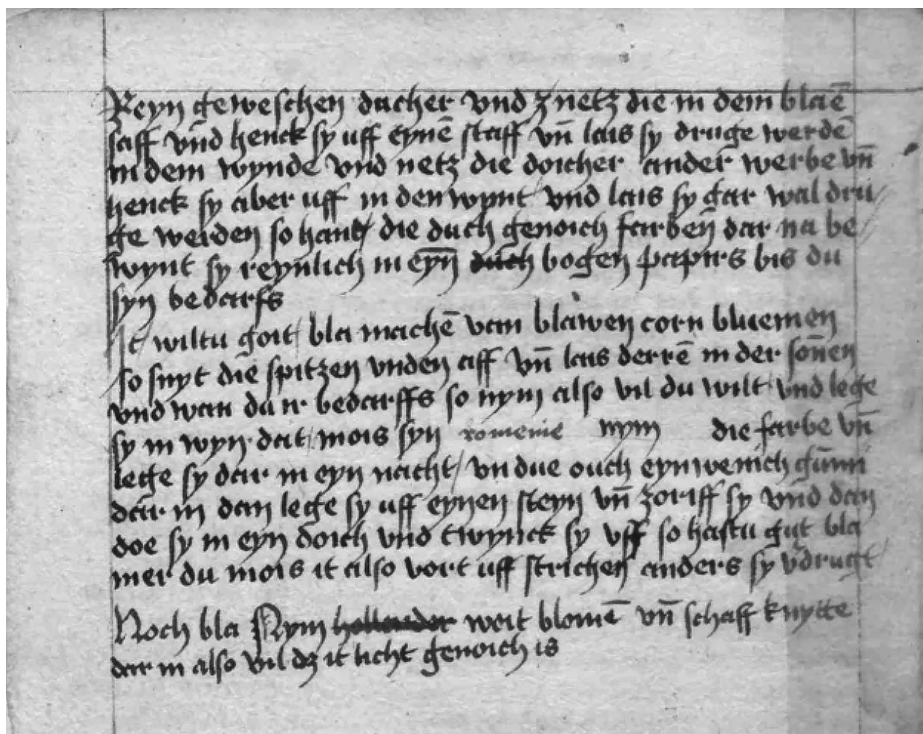 Reyn geweschen ducher vnd znetz die in dem blaē
saff vnd henck sy uff eynē staff vn̄ lais sy druge werdē
in dem wynde vnd netz die doicher ander werbe vn̄
henck sy aber uff in den wynt vnd lais sy gar wal dru
ge werden so hant die duch genoich farben dar na be
wynt sy reynlich in eyn̄ duch bogen papirs bis du
syn bedarfs
It wiltu goit bla machē van blawen corn bluemen
so snyt die spitzen vnden aff vn̄ lais derrē in der sonnen
vnd wan du ir bedarffs so nym also vil du wilt vnd lege
sy in wyn dat mois syn romenie nym die farbe vn̄
lege sy dar in eyn nacht vn due ouch eyn wenich gūmi
dar in dan lege sy uff eynen steyn vn̄ zoriff sy vnd dan
doe sy in eyn doich vnd twynck sy vff so hastu gut bla
mer du mois it also vort uff strichen anders sy v̄drugt
Noch bla Nym weit blomē vn̄ schaff knytte
dar in also vil dz it licht genoich is